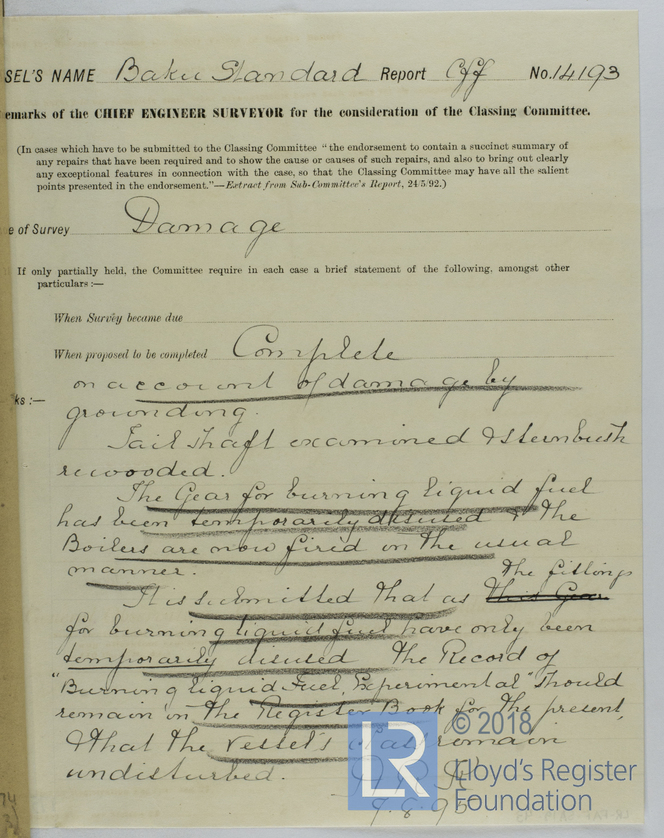 SEL'S NAME Baku Standard Report Cff No. 14193
emarks of the CHIEF ENGINEER SURVEYOR for the consideration of the Classing Committee.
(In cases which have to be submitted to the Classing Committee "the endorsement to contain a succinct summary of
any repairs that have been required and to show the cause or causes of such repairs, and also to bring out clearly
any exceptional features in connection with the case, so that the Classing Committee may have all the salient
points presented in the endorsement."—Extract from Sub-Committee's Report, 24/5/92.)
e of Survey Damage
If only partially held, the Committee require in each case a brief statement of the following, amongst other
particulars :—
When Survey became due
When proposed to be completed Complete
ks :— on account of damage by
grounding.
Tail shaft examined & sternbush
rewooded.
The Gear for burning liquid fuel
has been temporarily disused & the
Boilers are now fired in the usual
manner. The fittings
It is submitted that as this Gear
for burning liquid fuel have only been
temporarily disused the Record of
"Burning liquid Fuel, Experimental" should
remain in the Register Book for the present,
& that the vessel's class remain
undisturbed.
9.6.95
LR
© 2018
Lloyd's Register
Foundation